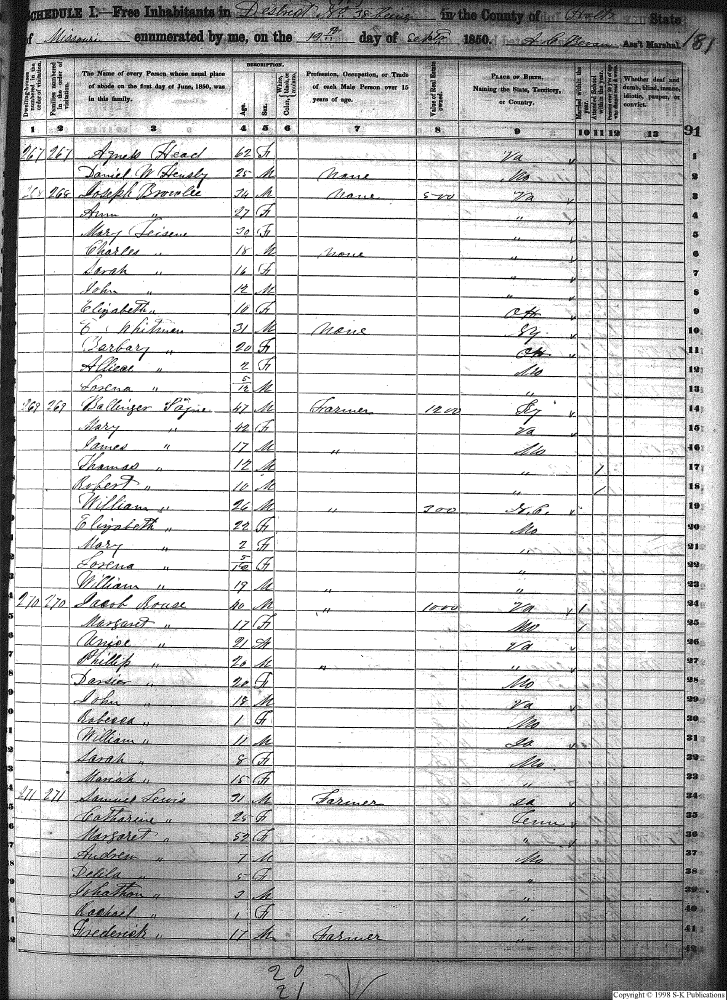 SCHEDULE I.—Free Inhabitants in District No 38 in the County of Holt State
of Missouri enumerated by me, on the 19th day of Sept 1850. Ass't Marshal. 181
Dwelling-houses numbered in the order of visitation.
Families numbered in the order of visitation.
The Name of every Person whose usual place of abode on the first day of June, 1850, was in this family.
DESCRIPTION.
Age.
Sex.
Color, White, black, or mulatto.
Profession, Occupation, or Trade of each Male Person over 15 years of age.
Value of Real Estate owned.
PLACE OF BIRTH. Naming the State, Territory, or Country.
Married within the year.
Attended School within the year.
Whether deaf and dumb, blind, insane, idiotic, pauper, or convict.
1 2 3 4 5 6 7 8 9 10 11 12 13 91
267 267 Agness Head 62 F Va 1
Daniel W Hensly 25 M None Mo 2
268 268 Joseph Brownlee 34 M None 500 Va 3
Ann " 27 F " 4
Mary 30 F " 5
Charles " 18 M None " 6
Sarah " 16 F " 7
John " 12 M " 8
Elizabeth " 10 F Oh 9
E Whitman 31 M None Ky 10
Barbary " 20 F Oh 11
" 2 F Mo 12
Lorena " 5/12 M " 13
269 269 Ballinger 47 M Farmer 1200 Ky 14
Mary " 42 F Va 15
James " 17 M " Mo 16
Thomas " 12 M " 1 17
Robert " 10 M " 1 18
William " 26 M " 300 19
Elizabeth " 22 F Mo 20
Mary " 2 F " 21
Lorena " F " 22
William " 19 M " " 23
270 270 Jacob Rouse 40 M " 1000 Va 1 24
Margaret " 17 F Mo 1 25
" 21 Va 26
Phillip " 20 M " " 27
" 20 F Mo 28
John " 18 M Va 29
Rebecca " 1 F Mo 30
William " 11 M 31
Sarah " 8 F Mo 32
Mariah " 15 F " 33
271 271 Samuel Lewis M Farmer 34
Catharine " 25 F Tenn 35
Margaret " 52 F " 36
Andrew " 7 M Mo 37
Delila " 5 F " 38
Johathon " 3 M " 39
Rachael " 1 F " 40
Frederick " 17 M Farmer " 41
42
20
21
Copyright © 1998 S-K Publications